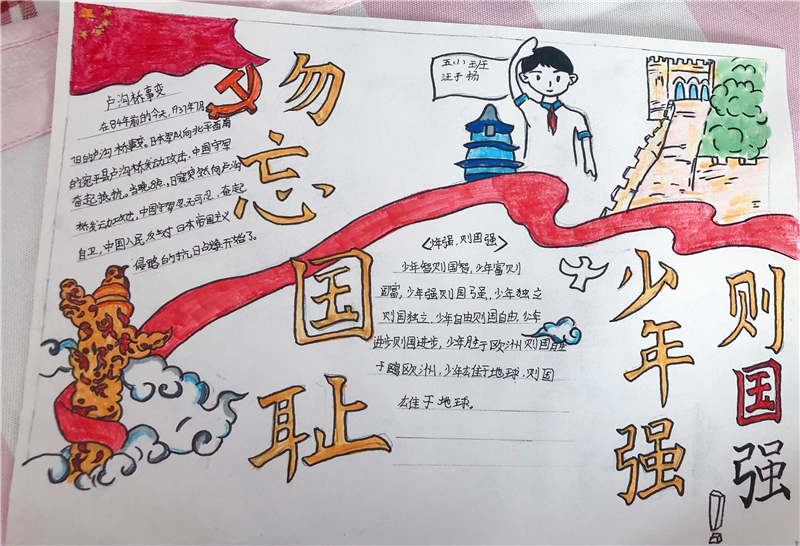 卢沟桥事变
在84年前的今天,1937年7月
7日的卢沟桥事变。日本军队向北平西南
的宛平县卢沟桥发动攻击,中国守军
奋起抵抗。当晚8点,日寇突然向卢沟
桥发动攻击,中国守军忍无可忍,奋起
自卫,中国人民反对日本帝国主义
侵略的抗日战争开始了。
勿忘国耻
汪子杨
<少年强,则国强>
少年智则国智,少年富则
国富,少年强则国强,少年独立
则国独立,少年自由则国自由,少年
进步则国进步,少年胜于欧洲则国胜
于欧洲,少年雄于地球,则国
雄于地球。
少年强
则国强!